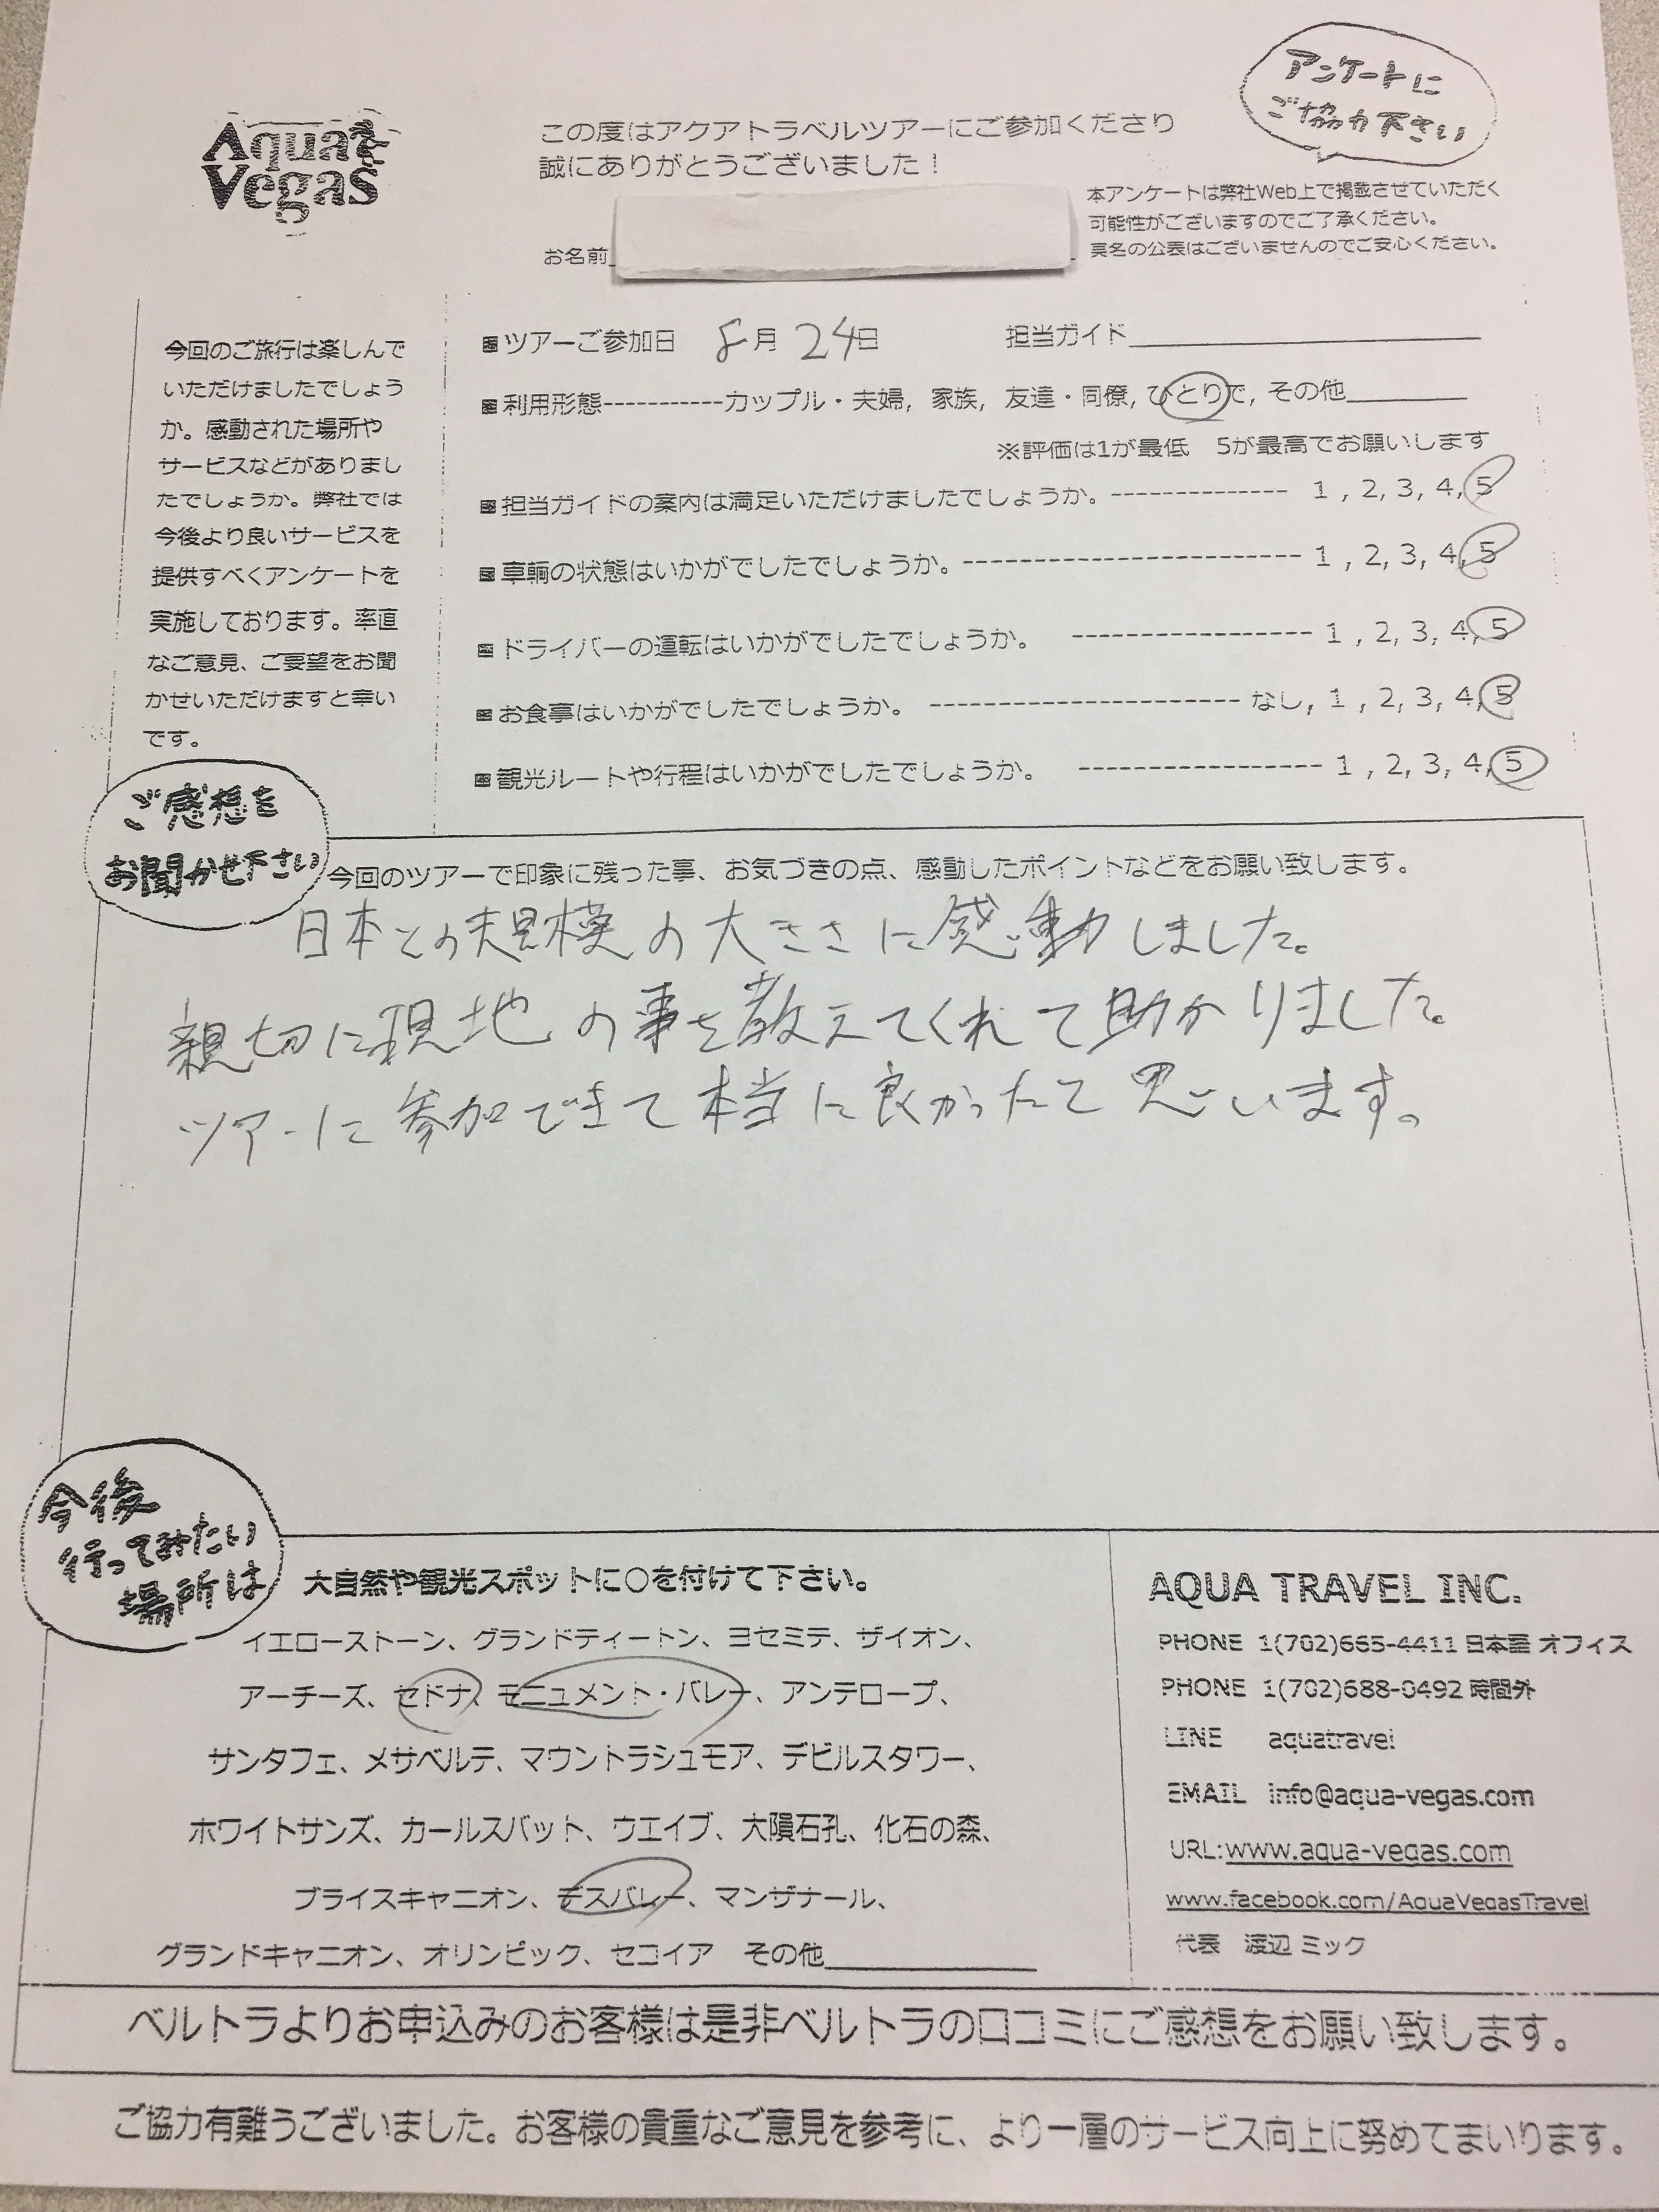 Aqua
Vegas
この度はアクアトラベルツアーにご参加くださり
誠にありがとうございました！
アンケートに
ご協力下さい
本アンケートは弊社Web上で掲載させていただく
可能性がございますのでご了承ください。
実名の公表はございませんのでご安心ください。
お名前
今回のご旅行は楽しんで
いただけましたでしょう
か。感動された場所や
サービスなどがありまし
たでしょうか。弊社では
今後より良いサービスを
提供すべくアンケートを
実施しております。率直
なご意見、ご要望をお聞
かせいただけますと幸い
です。
■ツアーご参加日 8月 24日 担当ガイド
■利用形態-----------カップル・夫婦, 家族, 友達・同僚, ひとりで, その他
※評価は1が最低 5が最高でお願いします
■担当ガイドの案内は満足いただけましたでしょうか。-------------- 1 , 2, 3, 4, 5
■車輌の状態はいかがでしたでしょうか。----------------------- 1 , 2, 3, 4, 5
■ドライバーの運転はいかがでしたでしょうか。 ----------------- 1 , 2, 3, 4, 5
■お食事はいかがでしたでしょうか。 --------------------- なし, 1 , 2, 3, 4, 5
■観光ルートや行程はいかがでしたでしょうか。 ----------------- 1 , 2, 3, 4, 5
ご感想を
お聞かせ下さい
今回のツアーで印象に残った事、お気づきの点、感動したポイントなどをお願い致します。
日本との規模の大きさに感動しました。
親切に現地の事を教えてくれて助かりました。
ツアーに参加できて本当に良かったと思います。
今後
行ってみたい
場所は
大自然や観光スポットに○を付けて下さい。
イエローストーン、グランドティートン、ヨセミテ、ザイオン、
アーチーズ、セドナ、モニュメント・バレー、アンテロープ、
サンタフェ、メサベルテ、マウントラシュモア、デビルスタワー、
ホワイトサンズ、カールスバット、ウエイブ、大隕石孔、化石の森、
ブライスキャニオン、デスバレー、マンザナール、
グランドキャニオン、オリンピック、セコイア その他
AQUA TRAVEL INC.
PHONE 1(702)665-4411 日本語 オフィス
PHONE 1(702)688-0492 時間外
LINE aquatravel
EMAIL info@aqua-vegas.com
URL:www.aqua-vegas.com
www.facebook.com/AquaVegasTravel
代表 渡辺 ミック
ベルトラよりお申込みのお客様は是非ベルトラの口コミにご感想をお願い致します。
ご協力有難うございました。お客様の貴重なご意見を参考に、より一層のサービス向上に努めてまいります。